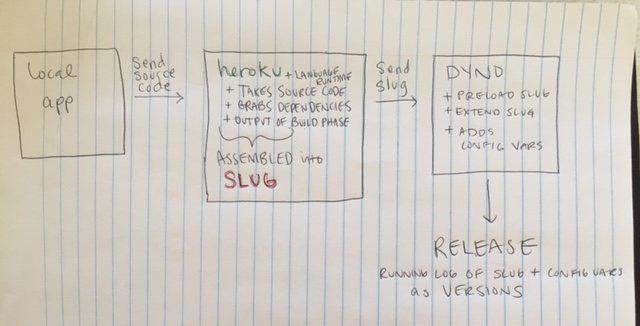 Local
app
Send
Source
Code
heroku + LANGUAGE
RUNTIME
+ TAKES SOURCE CODE
+ GRABS DEPENDENCIES
+ OUTPUT OF BUILD PHASE
ASSEMBLED into
SLUG
Send
Slug
DYNO
+ PRELOAD SLUG
+ EXTEND SLUG
+ ADDS
CONFIG VARS
RELEASE
RUNNING LOG OF SLUG + CONFIG VARS
as VERSIONS